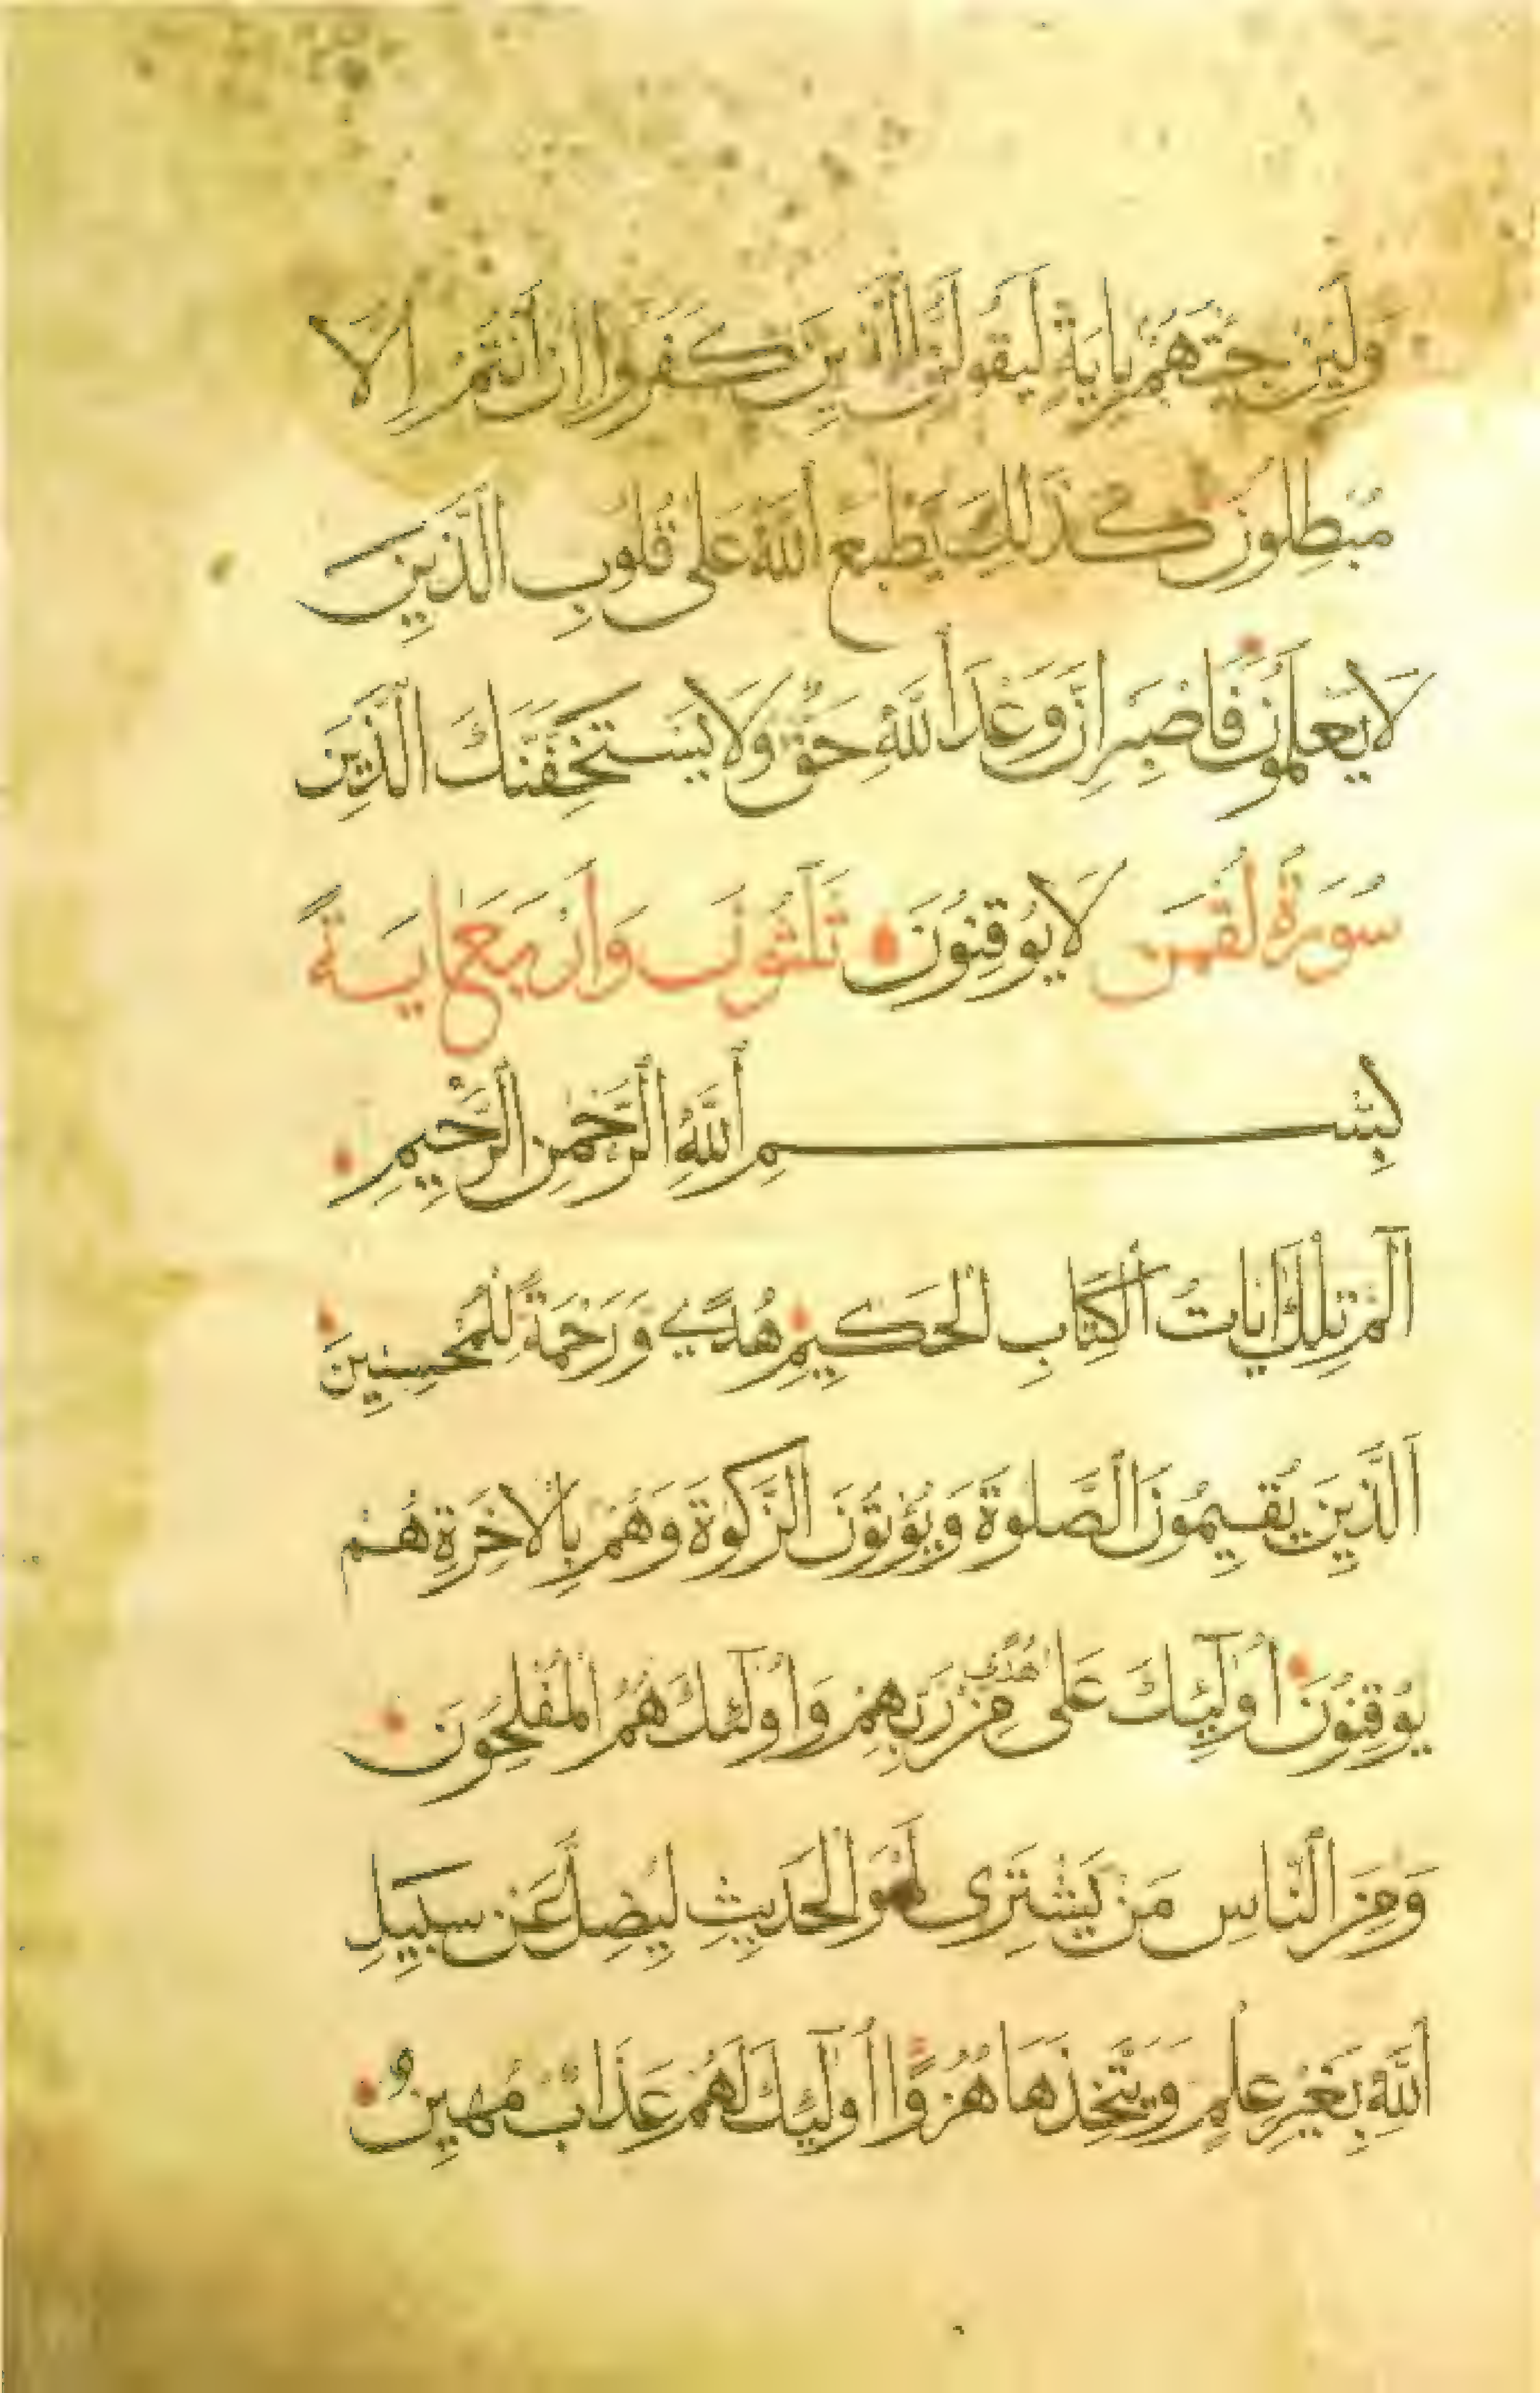 وَلَئِنْ جِئْتَهُمْ بِايَةٍ لَيَقُولَنَّ الَّذِينَ كَفَرُوا اِنْ اَنْتُمْ اِلَّا
مُبْطِلُونَ كَذَلِكَ يَطْبَعُ اللَّهُ عَلَى قُلُوبِ الَّذِينَ
لَا يَعْلَمُونَ فَاصْبِرْ اِنَّ وَعْدَ اللَّهِ حَقٌّ وَلَا يَسْتَخِفَّنَّكَ الَّذِينَ
سُورَةُ لُقْمَن لَا يُوقِنُونَ ثَلَثُونَ وَاَرْبَعُ ايَةً
بِسْمِ اللَّهِ الرَّحْمَنِ الرَّحِيمِ
الَم تِلْكَ ايَاتُ الْكِتَابِ الْحَكِيمِ هُدًى وَرَحْمَةً لِلْمُحْسِنِينَ
اَلَّذِينَ يُقِيمُونَ الصَّلَوةَ وَيُؤْتُونَ الزَّكَوةَ وَهُمْ بِالْاخِرَةِ هُمْ
يُوقِنُونَ اُولَئِكَ عَلَى هُدًى مِنْ رَبِّهِمْ وَاُولَئِكَ هُمُ الْمُفْلِحُونَ
وَمِنَ النَّاسِ مَنْ يَشْتَرِى لَهْوَ الْحَدِيثِ لِيُضِلَّ عَنْ سَبِيلِ
اللَّهِ بِغَيْرِ عِلْمٍ وَيَتَّخِذَهَا هُزُوًا اُولَئِكَ لَهُمْ عَذَابٌ مُهِينٌ